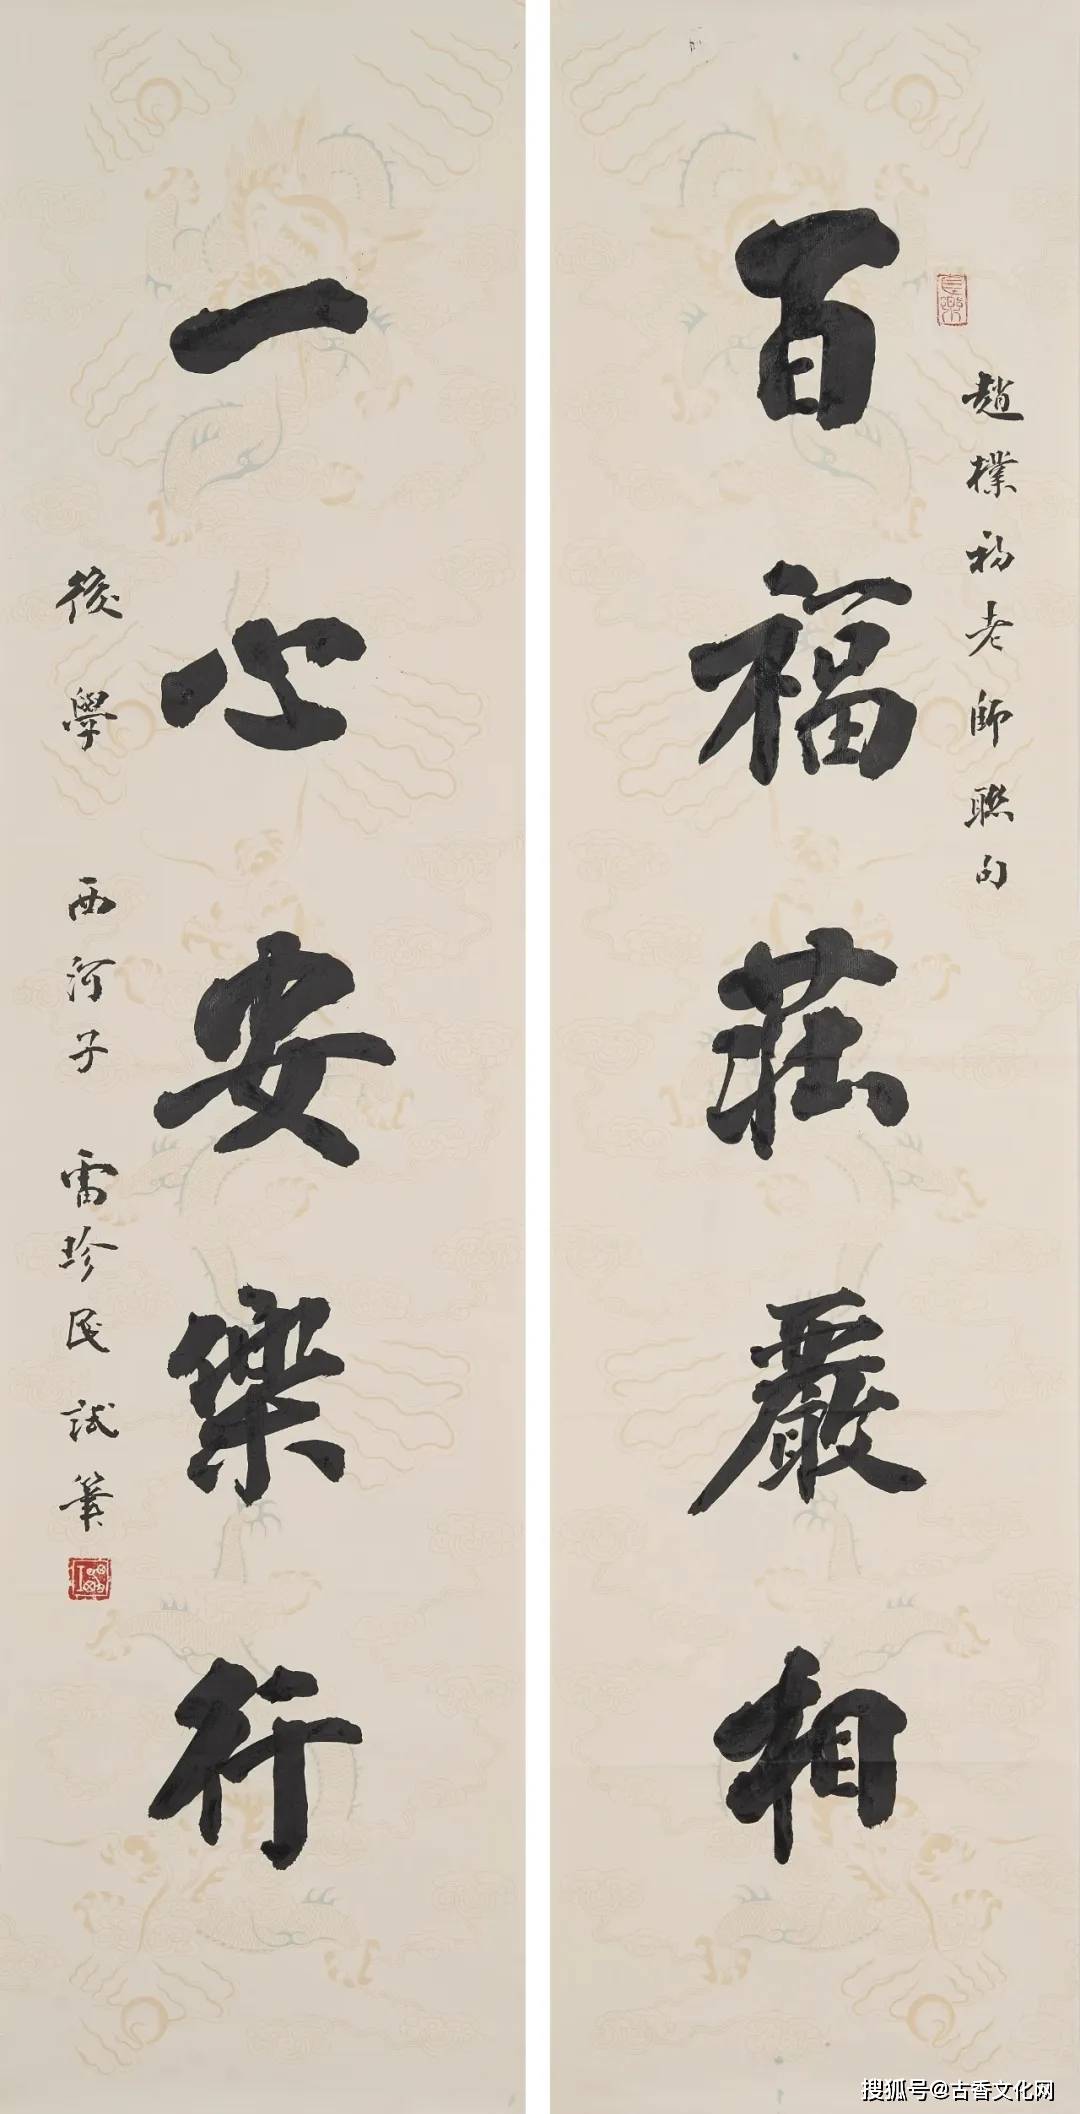 趙樸初老師聯句
百福莊嚴相
一心安樂行
後學 西河子 雷珍民 試筆
長樂
搜狐号@古香文化网